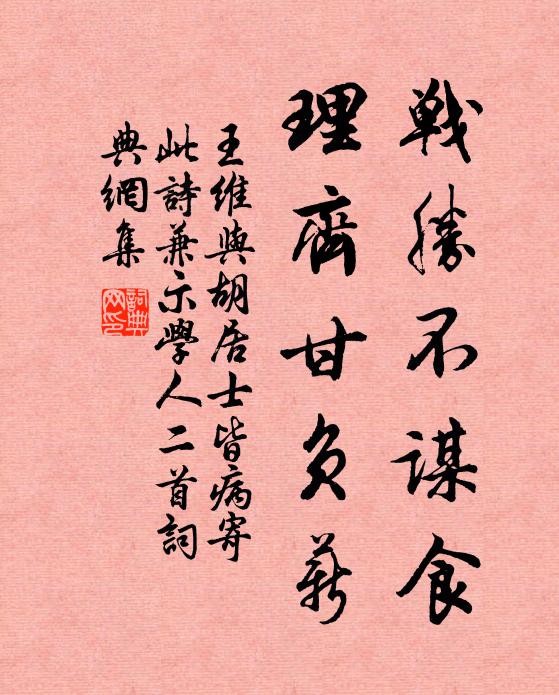 戰勝不謀食
理齊甘負薪
王維與胡居士皆病寄
此詩兼示學人二首詞
典網集
詞典
网印